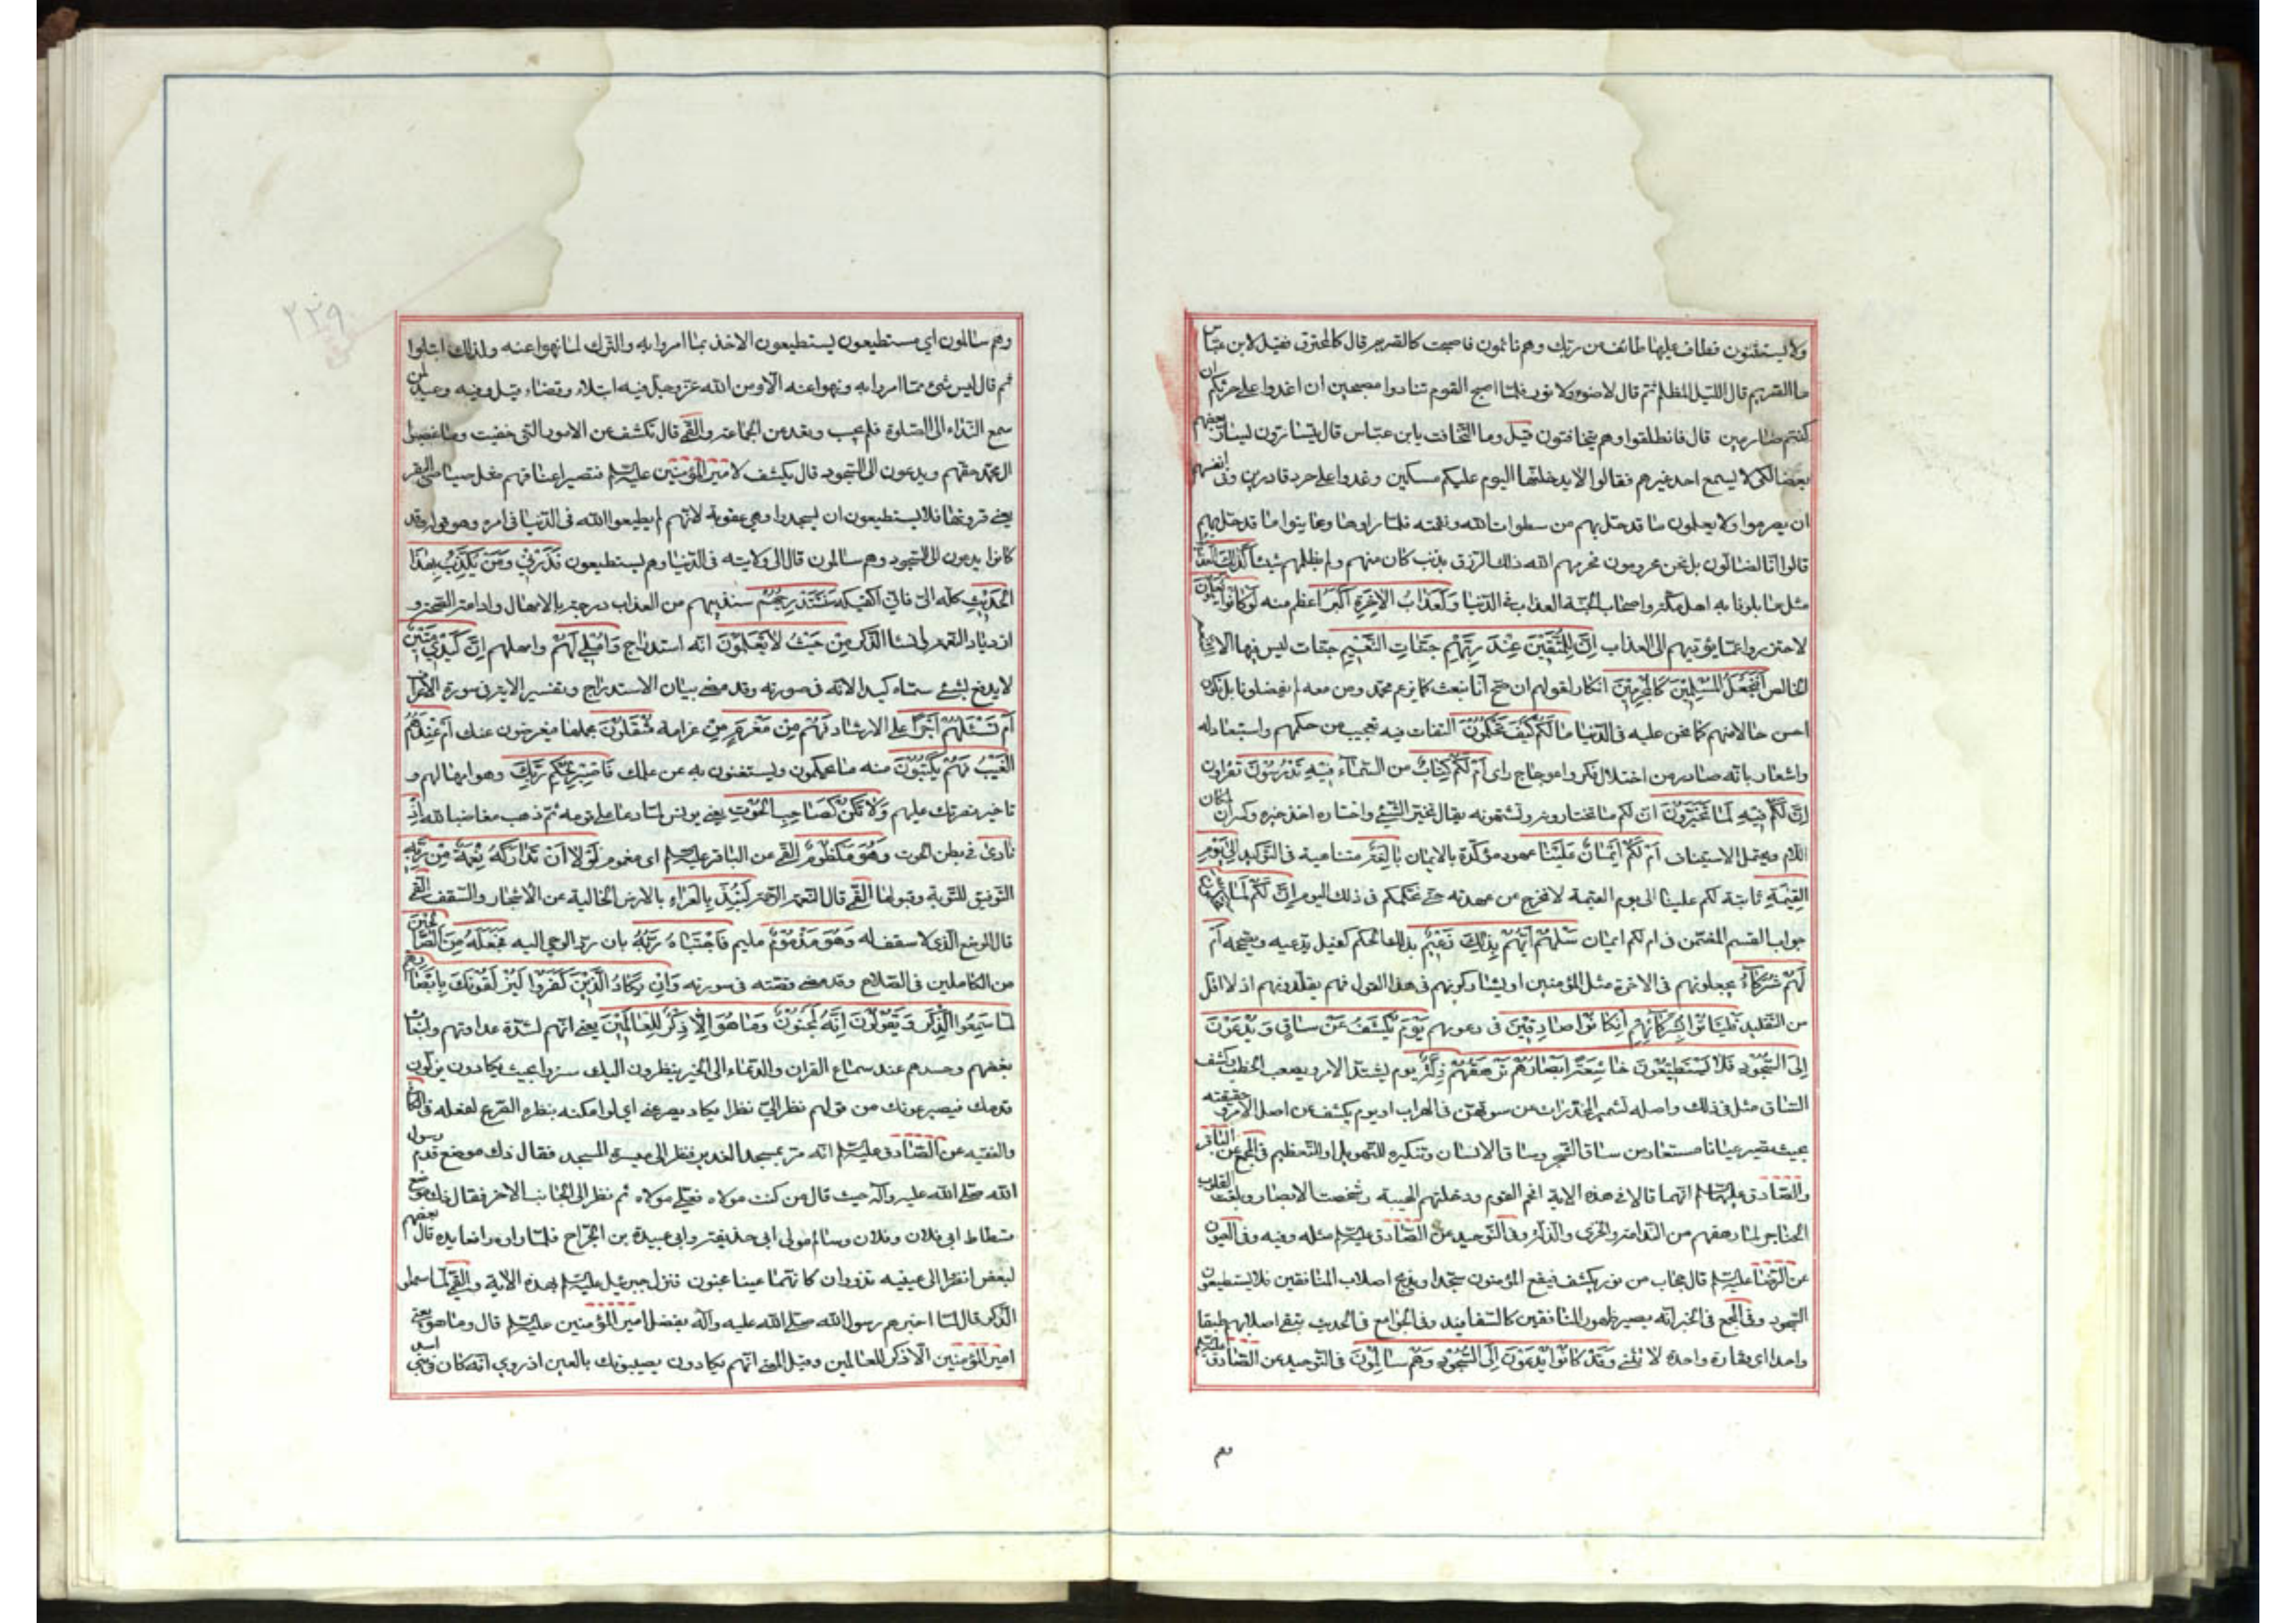 ولا يستثنون فطاف عليها طائف من ربك وهم نائمون فاصبحت كالصريم قال كالمحترق فقيل لابن عباس
ما الصريم قال الليل المظلم ثم قال لا ضوء ولا نور فلما اصبح القوم تنادوا مصبحين ان اغدوا على حرثكم ان
كنتم صارمين قال فانطلقوا وهم يتخافتون قيل وما التخافت يابن عباس قال يتسارون ليسار بعضهم
بعضا لكى لا يسمع احد غيرهم فقالوا لا يدخلنها اليوم عليكم مسكين وغدوا على حرد قادرين وفى انفسهم
ان يصرموا ولا يعلمون ما قد حل بهم من سطوات الله ونقمته فلما راوها وعاينوا ما قد حل بهم
قالوا انا لضالون بل نحن محرومون فحرمهم الله ذلك الرزق بذنب كان منهم ولم يظلمهم شيئا كَذلِكَ العَذابُ
مثل ما بلونا به اهل مكة واصحاب الجنة العذاب فى الدنيا وَلَعَذابُ الاخِرَةِ اَكبَرُ اعظم منه لَوكانُوا يَعلَمُونَ
لاحترزوا عما يؤديهم الى العذاب اِنَّ لِلمُتَّقِينَ عِندَ رَبِّهِم جَنّاتِ النَّعِيمِ جنات ليس فيها الا التنعم
الخالص اَفَنَجعَلُ المُسلِمِينَ كَالمُجرِمِينَ انكار لقولهم ان صح انا نبعث كما يزعم محمد ومن معه لم يفضلونا بل نكون
احسن حالا منهم كما نحن عليه فى الدنيا ما لَكُم كَيفَ تَحكُمُونَ التفات فيه تعجيب من حكمهم واستبعاد له
واشعار بانه صادر من اختلال فكر واعوجاج راى اَم لَكُم كِتابٌ من السماء فِيهِ تَدرُسُونَ تقراون
اِنَّ لَكُم فِيهِ لَما تَخَيَّرُونَ ان لكم ما تختارونه وتشتهونه يقال تخير الشئ واختاره اخذ خيره وكسر ان لمكان
اللام ويحتمل الاستيناف اَم لَكُم اَيمانٌ عَلَينا عهود مؤكدة بالايمان بالِغَةٌ متناهية فى التوكيد اِلى يَومِ
القِيمَةِ ثابتة لكم علينا الى يوم القيمة لا نخرج عن عهدته حتى نحكمكم فى ذلك اليوم اِنَّ لَكُم لَما تَحكُمُونَ
جواب القسم المضمن فى ام لكم ايمان سَلهُم اَيُّهُم بِذلِكَ زَعِيمٌ بذلك الحكم كفيل يدعيه ويصححه اَم
لَهُم شُرَكاءُ يجعلونهم فى الاخرة مثل المؤمنين او يشاركونهم فى هذا القول فهم يقلدونهم اذ لا اقل
من التقليد فَليَاتُوا بِشُرَكائِهِم اِنكانُوا صادِقِينَ فى دعويهم يَومَ يُكشَفُ عَن ساقٍ وَيُدعَونَ
اِلَى السُّجُودِ فَلا يَستَطِيعُونَ خاشِعَةً اَبصارُهُم تَرهَقُهُم ذِلَّةٌ يوم يشتد الامر ويصعب الخطب وكشف
الساق مثل فى ذلك واصله تشمير المخدرات عن سوقهن فى الهرب او يوم يكشف عن اصل الامر وحقيقته
بحيث يصير عيانا مستعار من ساق الشجر وساق الانسان وتنكيره للتهويل او التعظيم فى المجمع عن الباقر
والصادق عليهما السلام انهما قالا فى هذه الاية افحم القوم ودخلتهم الهيبة وشخصت الابصار وبلغت القلوب
الحناجر لما رهقهم من الندامة والخزى والذلة وفى التوحيد عن الصادق عليه السلام مثله وفيه وفى العيون
عن الرضا عليه السلام قال حجاب من نور يكشف فيقع المؤمنون سجدا ويدمج اصلاب المنافقين فلا يستطيعون
السجود وفى المجمع فى الخبر انه يصير ظهور المنافقين كالسفافيد وفى الجوامع فى الحديث تبقى اصلابهم طبقا
واحدا اى فقارة واحدة لا تنثنى وَقَد كانُوا يُدعَونَ اِلَى السُّجُودِ وَهُم سالِمُونَ فى التوحيد عن الصادق عليه السلام
وهم
٢٢٩
وهم سالمون اى مستطيعون يستطيعون الاخذ بما امروا به والترك لما نهوا عنه ولذلك ابتلوا
ثم قال ليس شئ مما امروا به ونهوا عنه الا ومن الله عز وجل فيه ابتلاء وقضاء قيل وفيه وعيد لمن
سمع النداء الى الصلوة فلم يجب وقعد عن الجماعة والقمى قال تكشف عن الامور التى خفيت وما غصبوا
ال محمد حقهم ويدعون الى السجود قال يكشف لامير المؤمنين عليه السلام فتصير اعناقهم مثل صياصى البقر
يعنى قرونها فلا يستطيعون ان يسجدوا وهى عقوبة لانهم لم يطيعوا الله فى الدنيا فى امره وهو قوله وقد
كانوا يدعون الى السجود وهم سالمون قال الى ولايته فى الدنيا وهم يستطيعون فَذَرنِي وَمَن يُكَذِّبُ بِهذَا
الحَدِيثِ كله الى فانى اكفيكه سَنَستَدرِجُهُم سندنيهم من العذاب درجة بالامهال وادامة الصحة و
ازدياد النعمة وانساء الذكر مِن حَيثُ لا يَعلَمُونَ انه استدراج وَاُملِي لَهُم وامهلهم اِنَّ كَيدِي مَتِينٌ
لا يدفع بشئ سماه كيدا لانه فى صورته وقد مضى بيان الاستدراج وتفسير الاية فى سورة الاعراف
اَم تَسئَلُهُم اَجرًا على الارشاد فَهُم مِن مَغرَمٍ من غرامة مُثقَلُونَ بحملها فيعرضون عنك اَم عِندَهُمُ
الغَيبُ فَهُم يَكتُبُونَ منه ما يحكمون ويستغنون به عن علمك فَاصبِر لِحُكمِ رَبِّكَ وهو امهالهم و
تاخير نصرتك عليهم وَلا تَكُن كَصاحِبِ الحُوتِ يعنى يونس لما دعا على قومه ثم ذهب مغاضبا لله اِذ
نادى فى بطن الحوت وَهُوَ مَكظُومٌ القمى عن الباقر عليه السلام اى مغموم لَولا اَن تَدارَكَهُ نِعمَةٌ مِن رَبِّهِ
التوفيق للتوبة وقبولها القمى قال النعمة الرحمة لَنُبِذَ بِالعَراءِ بالارض الخالية عن الاشجار والسقف القمى
قال الموضع الذى لا سقف له وَهُوَ مَذمُومٌ مليم فَاجتَباهُ رَبُّهُ بان رد الوحى اليه فَجَعَلَهُ مِنَ الصّالِحِينَ
من الكاملين فى الصلاح وقد مضى قصته فى سورته وَاِن يَكادُ الَّذِينَ كَفَرُوا لَيُزلِقُونَكَ بِاَبصارِهِم
لَمّا سَمِعُوا الذِّكرَ وَيَقُولُونَ اِنَّهُ لَمَجنُونٌ وَما هُوَ اِلّا ذِكرٌ لِلعالَمِينَ يعنى انهم لشدة عداوتهم وانبعاث
بغضهم وحسدهم عند سماع القران والدعاء الى الخير ينظرون اليك شزرا بحيث يكادون يزلون
قدمك فيصرعونك من قولهم نظر الى نظرا يكاد يصرعنى اى لو امكنه بنظره الصرع لفعله فى الكافى
والفقيه عن الصادق عليه السلام انه مر بمسجد الغدير فنظر الى ميسرة المسجد فقال ذاك موضع قدم رسول
الله صلى الله عليه وآله حيث قال من كنت مولاه فعلى مولاه ثم نظر الى الجانب الاخر فقال ذاك موضع
فسطاط ابى فلان وفلان وسالم مولى ابى حذيفة وابى عبيدة بن الجراح فلما راوه رافعا يده قال بعضهم
لبعض انظروا الى عينيه تدوران كانهما عينا مجنون فنزل جبرئيل عليه السلام بهذه الاية والقمى لما سمعوا
الذكر قال لما اخبرهم رسول الله صلى الله عليه وآله بفضل امير المؤمنين عليه السلام قال وما هو يعنى
امير المؤمنين الا ذكر للعالمين وقيل المعنى انهم يكادون يصيبونك بالعين اذ روى انه كان فى بنى اسد